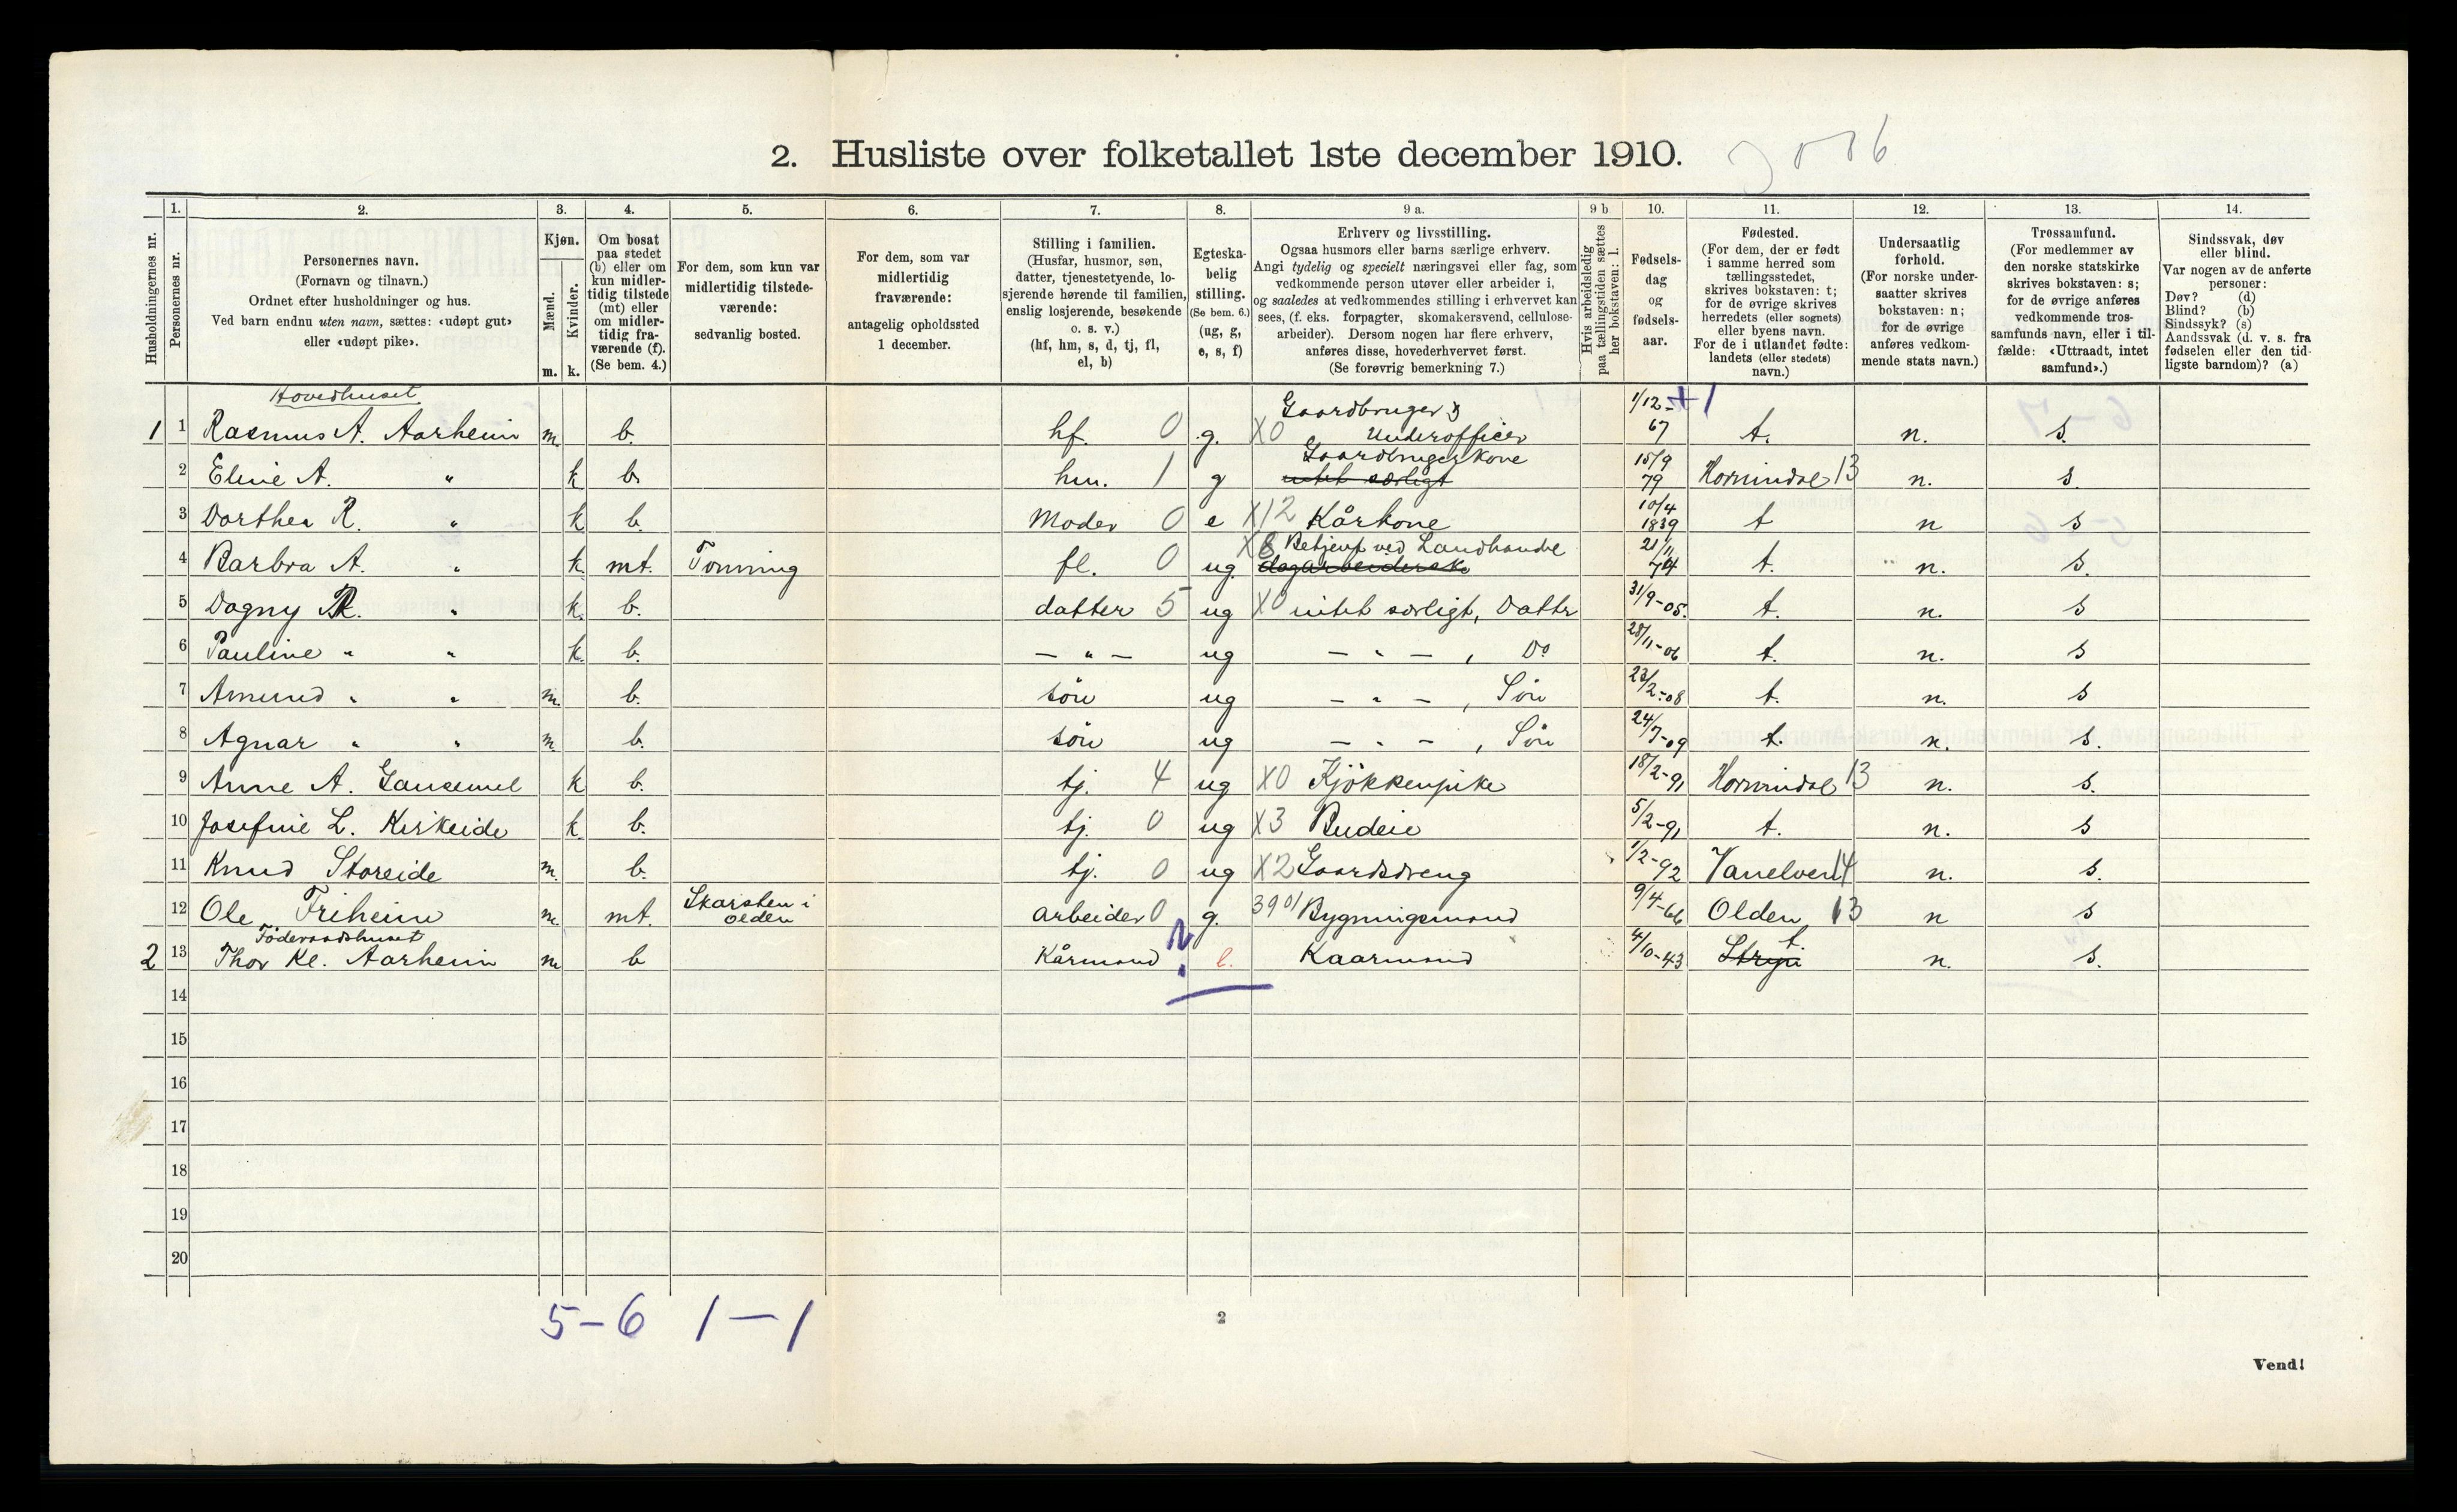 2. Husliste over folketallet 1ste december 1910.
Husholdningernes nr.
1.
Personernes nr.
2.
Personernes navn.
(Fornavn og tilnavn.)
Ordnet efter husholdninger og hus.
Ved barn endnu uten navn, sættes: «udøpt gut»
eller «udøpt pike».
3.
Kjøn.
Mænd.
Kvinder.
m. k.
4.
Om bosat
paa stedet
(b) eller om
kun midler-
tidig tilstede
(mt) eller
om midler-
tidig fra-
værende (f).
(Se bem. 4.)
5.
For dem, som kun var
midlertidig tilstede-
værende:
sedvanlig bosted.
6.
For dem, som var
midlertidig
fraværende:
antagelig opholdssted
1 december.
7.
Stilling i familien.
(Husfar, husmor, søn,
datter, tjenestetyende, lo-
sjerende hørende til familien,
enslig losjerende, besøkende
o. s. v.)
(hf, hm, s, d, tj, fl,
el, b)
8.
Egteska-
belig
stilling.
(Se bem. 6.)
(ug, g,
e, s, f)
9 a.
Erhverv og livsstilling.
Ogsaa husmors eller barns særlige erhverv.
Angi tydelig og specielt næringsvei eller fag, som
vedkommende person utøver eller arbeider i,
og saaledes at vedkommendes stilling i erhvervet kan
sees, (f. eks. forpagter, skomakersvend, cellulose-
arbeider). Dersom nogen har flere erhverv,
anføres disse, hovederhvervet først.
(Se forøvrig bemerkning 7.)
9 b
Hvis arbeidsledig
paa tællingstiden sættes
her bokstaven: l.
10.
Fødsels-
dag
og
fødsels-
aar.
11.
Fødested.
(For dem, der er født
i samme herred som
tællingsstedet,
skrives bokstaven: t;
for de øvrige skrives
herredets (eller sognets)
eller byens navn.
For de i utlandet fødte:
landets (eller stedets)
navn.)
12.
Undersaatlig
forhold.
(For norske under-
saatter skrives
bokstaven: n;
for de øvrige
anføres vedkom-
mende stats navn.)
13.
Trossamfund.
(For medlemmer av
den norske statskirke
skrives bokstaven: s;
for de øvrige anføres
vedkommende tros-
samfunds navn, eller i til-
fælde: «Uttraadt, intet
samfund».)
14.
Sindssvak, døv
eller blind.
Var nogen av de anførte
personer:
Døv? (d)
Blind? (b)
Sindssyk? (s)
Aandssvak (d. v. s. fra
fødselen eller den tid-
ligste barndom)? (a)
Hovedhuset
1 1 Rasmus A. Aarheim m. b. hf. 0 g. X0 Gaardbruger & Underofficer 1/12-67 +1 t. n. s.
2 Eline A. " k b. hm. 1 g intet særligt Gaardbrugerkone 15/9 79 Hornindal 13 n. s.
3 Dorthea R. " k b. Moder 0 e X12 Kårkone 10/4 1839 t n s
4 Barbra A. " k. mt. Tonning fl. 0 ug. X8 Betjent ved Landhandel dagarbeiderske 21/11 74 t. n. s.
5 Dagny R. " k. b. datter 5 ug X0 intet særligt, Datter 31/9-05. t. n. s
6 Pauline " " k. b. — " — ug — " — , Do 28/11-06 t. n. s
7 Amund " " m. b. sön ug — " — , Sön 23/2-08 t. n. s
8 Agnar " " m. b. sön ug — " — , Sön 24/7-09 t. n. s.
9 Anne A. Gausemel k b. tj. 4 ug X0 Kjökkenpike 18/2-91 Hornindal 13 n. s.
10 Josefine L. Kirkeide k. b. tj. 0 ug X3 Budeie 5/2-91 t. n. s
11 Knud Storeide m. b. tj. 0 ug X2 Gaardsdreng 1/2-92 Vanelven 14 n. s.
12 Ole Friheim m. mt. Skarsten i Olden arbeider 0 g. 3901 Bygningsmand 9/4-66 Olden 13 n s
Föderaadshuset
2 13 Thor Kl. Aarheim m b Kårmand ? e. Kaarmand 4/10-43 Stryn t. n. s.
14
15
16
17
18
19
20
5-6 1-1
2
Vend!